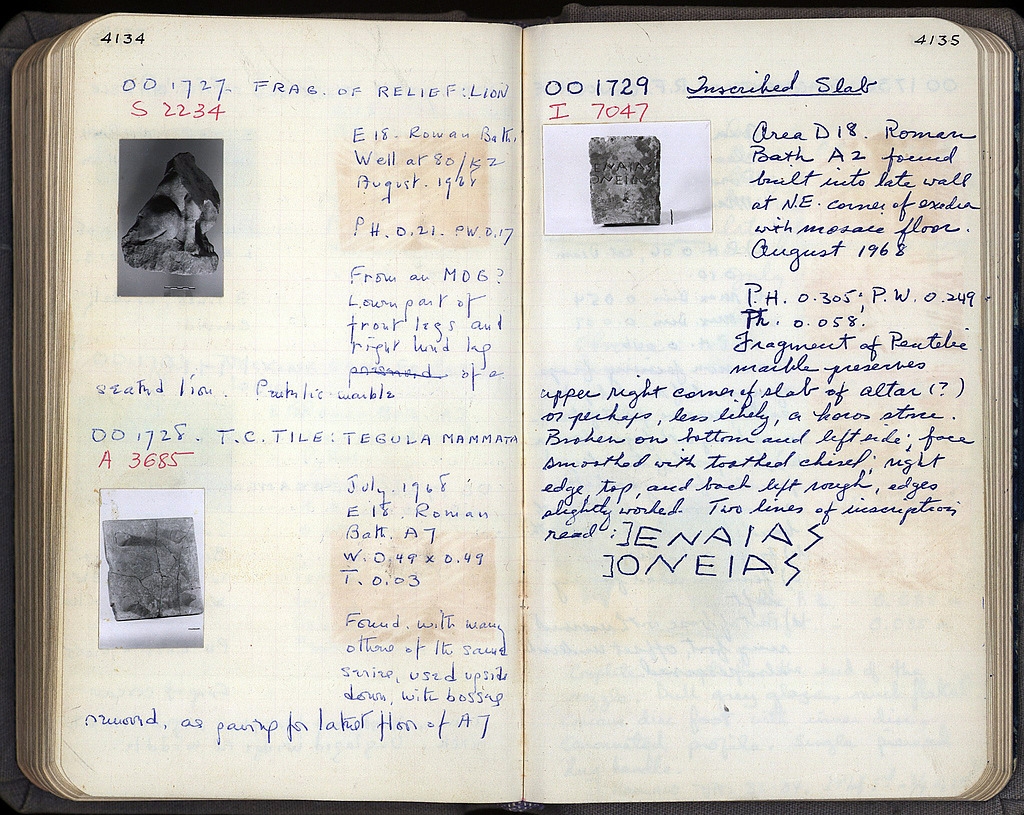 4134
OO 1727. FRAG. OF RELIEF: LION
S 2234
E 18. Roman Bath.
Well at 80/KZ
August. 1968
P H. 0.21. P.W. 0.17
From an MOG?
Lower part of
front legs and
right hind leg
preserved of a
seated lion. Pentelic marble
OO 1728. T.C. TILE: TEGULA MAMMATA
A 3685
July. 1968
E 18. Roman
Bath. A 7
W. 0.49 x 0.49
T. 0.03
Found. with many
others of the same
series, used upside
down, with bosses
removed, as paving for latest floor of A 7
4135
OO 1729 Inscribed Slab
I 7047
Area D 18. Roman
Bath A2 found
built into late wall
at N.E. corner of exedra
with mosaic floor.
August 1968
P.H. 0.305; P.W. 0.249
Th. 0.058.
Fragment of Pentelic
marble preserves
upper right corner of slab of altar (?)
or perhaps, less likely, a horos stone.
Broken on bottom and left side; face
smoothed with toothed chisel; right
edge, top, and back left rough, edges
slightly worked. Two lines of inscription
read: ]ENAIAS
]ONEIAS
ENAIAS
ONEIA